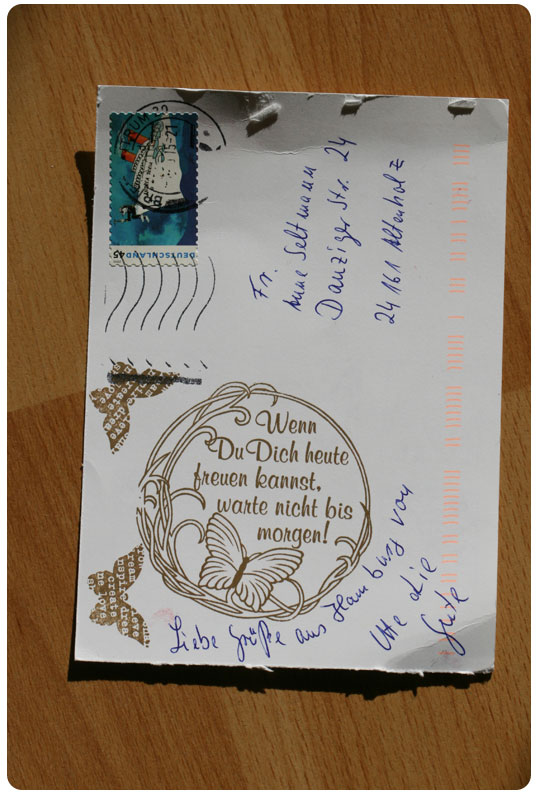 DEUTSCHLAND 45
Fr.
Anne Seltmann
Danziger Str. 24
24161 Altenholz
Wenn
Du Dich heute
freuen kannst,
warte nicht bis
morgen!
Liebe Grüße aus Hamburg von
Ute die
Gute
create
inspire
create